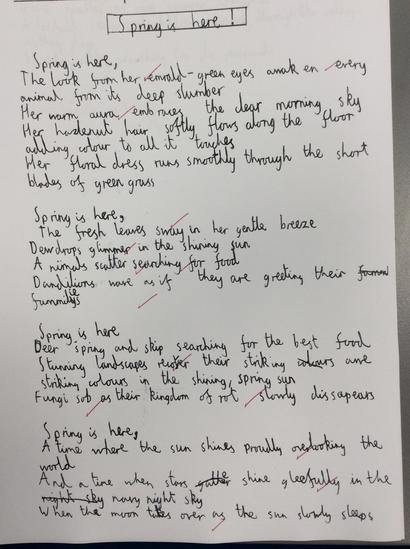 Spring is here!
Spring is here,
The look from her emrald-green eyes awaken every
animal from its deep slumber
Her warm aura embraces the clear morning sky
Her hazlenut hair softly flows along the floor
adding colour to all it touches
Her floral dress runs smoothly through the short
blades of green grass
Spring is here,
The fresh leaves sway in her gentle breeze
Dewdrops glimmer in the shining sun
Animals scatter searching for food
Dandilions wave as if they are greeting their
Spring is here
Deer spring and skip searching for the best food
Stunning landscapes their striking colours are
striking colours in the shining, spring sun
Fungi sob as their kingdom of rot slowly dissapears
Spring is here,
A time where the sun shines proudly overlooking the
world
And a time when stars shine gleefully in the
night sky navy night sky
When the moon takes over as the sun slowly sleeps